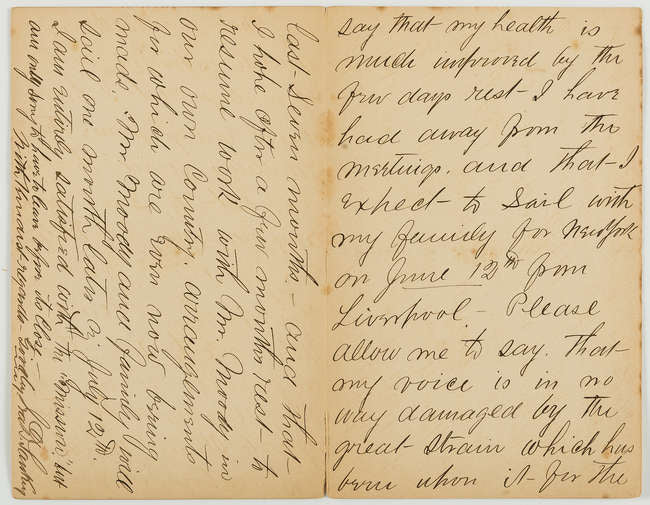 say that my health is
much improved by the
few days rest - I have
had away from the
meetings. and that - I
expect - to Sail with
my family for New York
on June 12th from
Liverpool - Please
allow me to say. that -
my voice is in no
way damaged by the
great - strain which has
been upon it - for the
last - Seven months. - and that -
I hope after a few months rest - to
resume work with Mr. Moody in
our own Country. arrangements
for which are even now being
made. Mr. Moody and family will
sail one month later i.e. July 12th.
I am entirely satisfied with the "Mission" but
am only sorry to have to leave before its close -
With kindest regards -